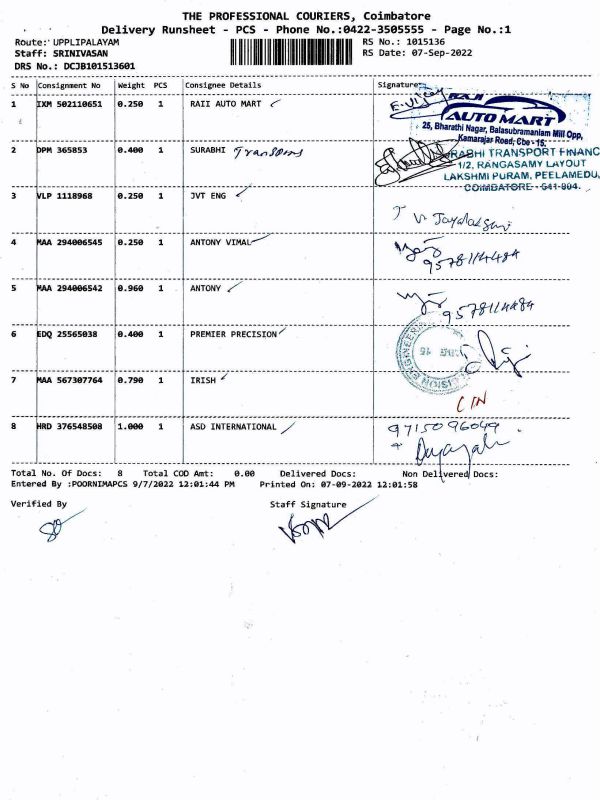 THE PROFESSIONAL COURIERS, Coimbatore
Delivery Runsheet - PCS - Phone No.:0422-3505555 - Page No.:1
Route: UPPLIPALAYAM RS No.: 1015136
Staff: SRINIVASAN RS Date: 07-Sep-2022
DRS No.: DCJB101513601
S No Consignment No Weight PCS Consignee Details Signature
1 IXM 502110651 0.250 1 RAII AUTO MART
RAJI
AUTO MART
25, Bharathi Nagar, Balasubramaniam Mill Opp,
Kamarajar Road, Cbe - 15.
2 DPM 365853 0.400 1 SURABHI
RABHI TRANSPORT FINANC
1/2, RANGASAMY LAYOUT
LAKSHMI PURAM, PEELAMEDU,
COIMBATORE - 641 004.
3 VLP 1118968 0.250 1 JVT ENG
4 MAA 294006545 0.250 1 ANTONY VIMAL
9578114484
5 MAA 294006542 0.960 1 ANTONY
9578114484
6 EDQ 25565038 0.400 1 PREMIER PRECISION
7 MAA 567307764 0.790 1 IRISH
8 HRD 376548508 1.000 1 ASD INTERNATIONAL 9715096049
Total No. Of Docs: 8 Total COD Amt: 0.00 Delivered Docs: Non Delivered Docs:
Entered By :POORNIMAPCS 9/7/2022 12:01:44 PM Printed On: 07-09-2022 12:01:58
Verified By Staff Signature